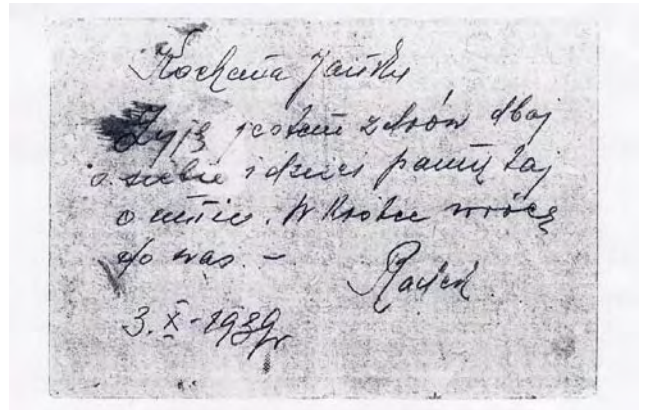 Kochana Janko
Żyję jestem zdrów dbaj
o siebie i dzieci pamiętaj
o mnie. Wkrótce wrócę
do was. –
3.X-1939r